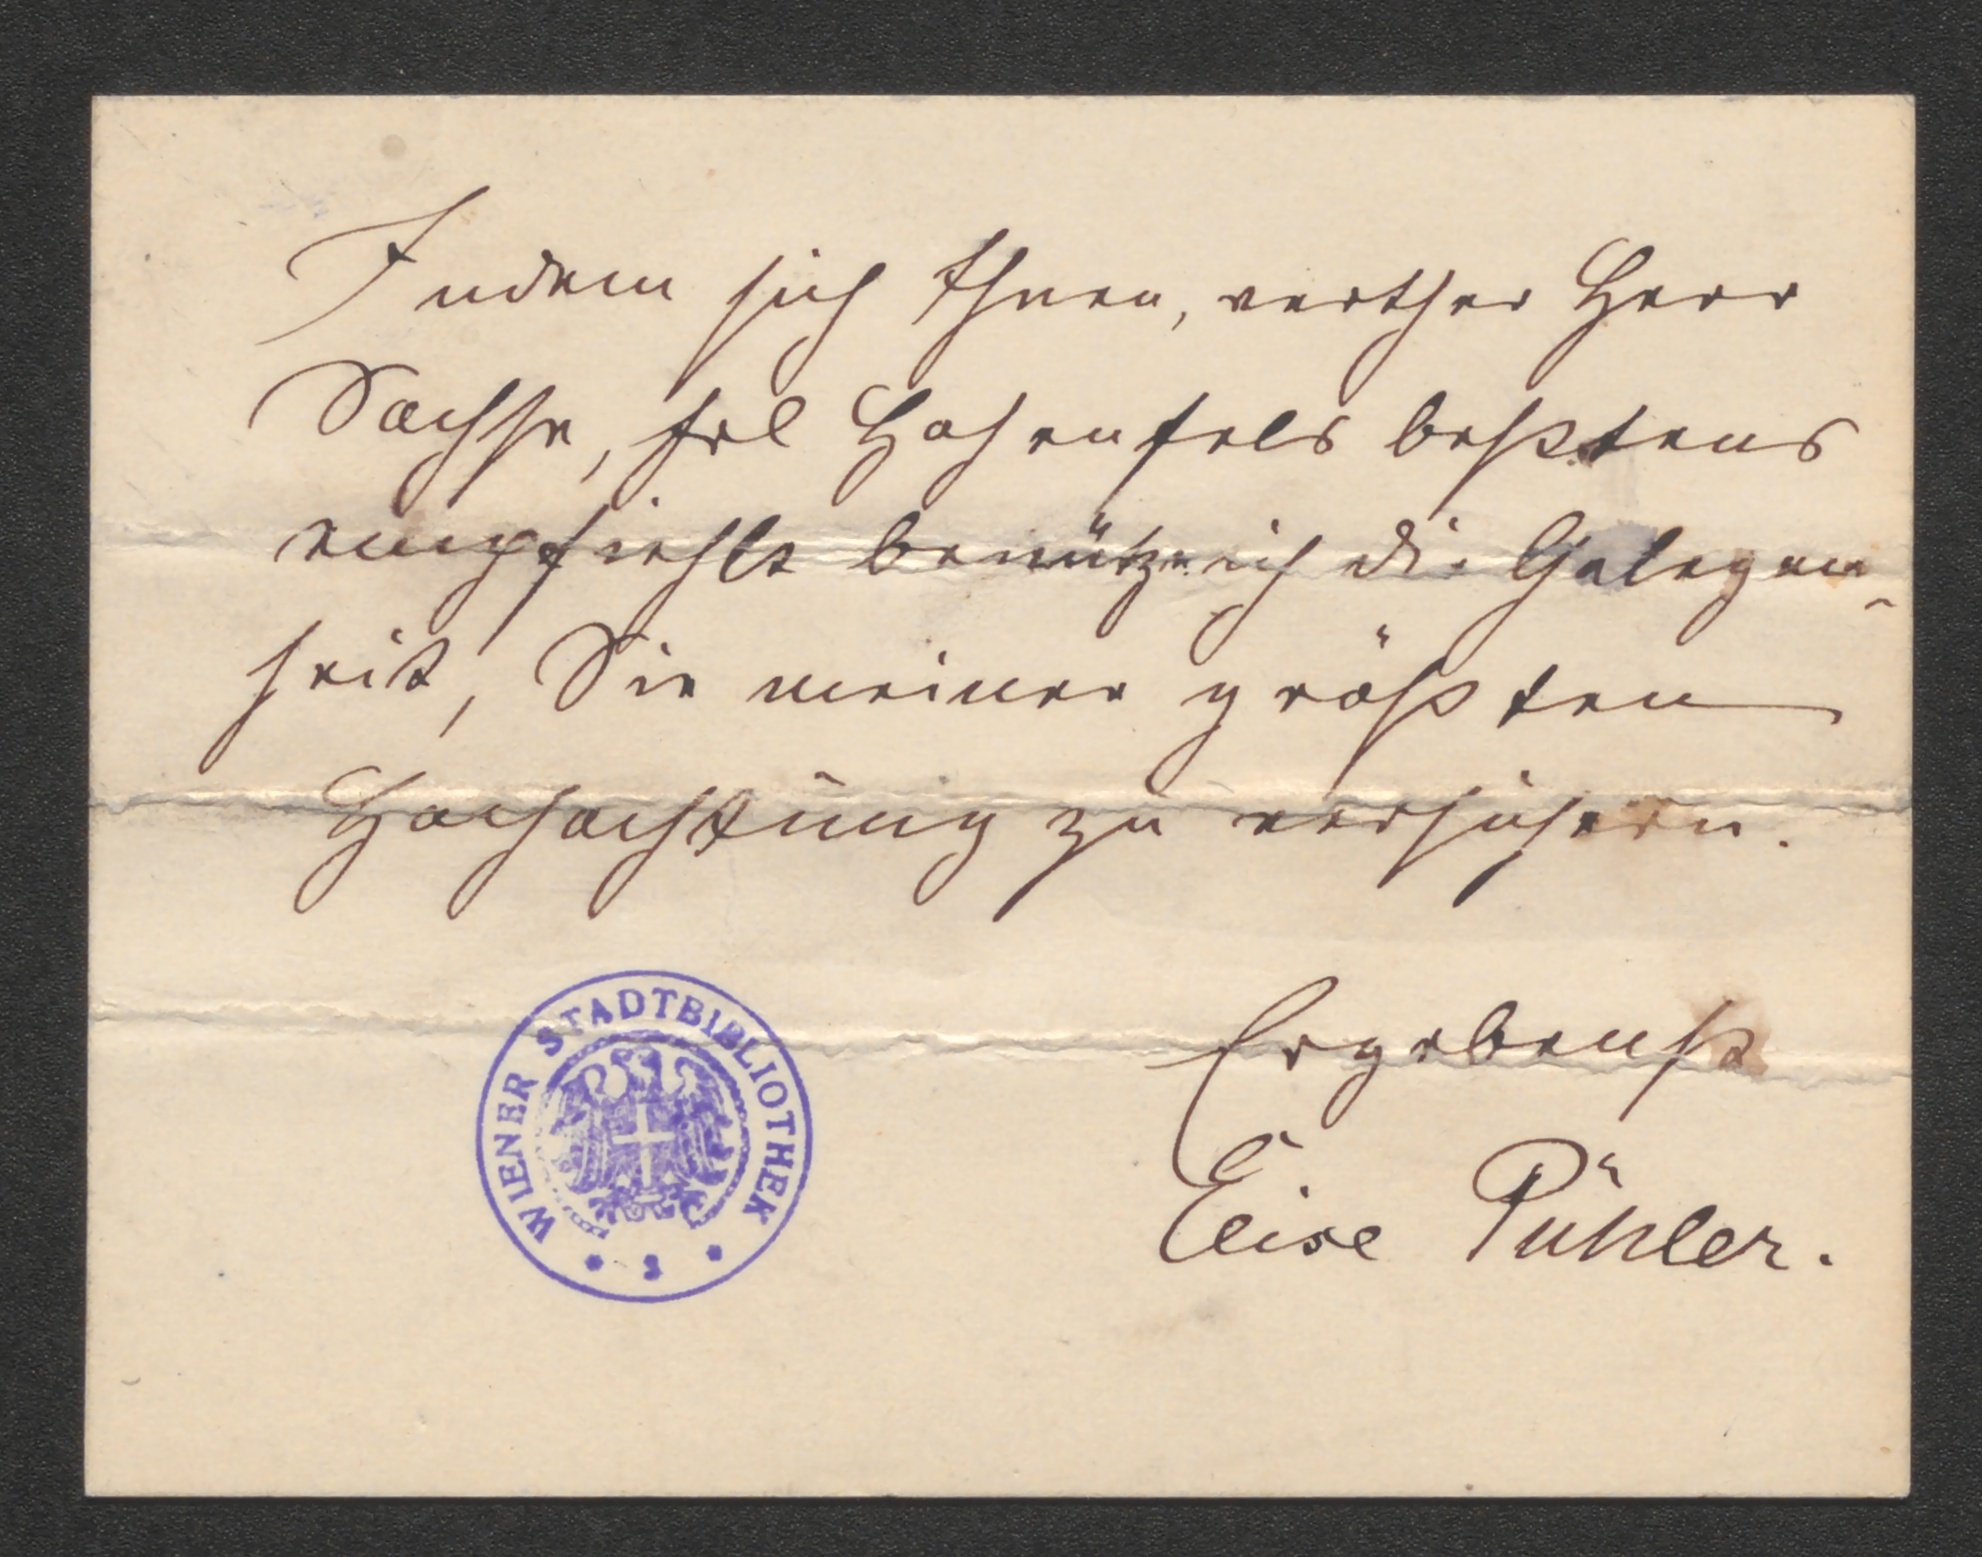 Indem sich Ihnen, werther Herr
Sachse, Frl Hohenfels beßtens
empfiehlt benütze ich die Gelegen-
heit, Sie meiner größten
Hochachtung zu versichern.
Ergebenst
Elise Pühler.
WIENER STADTBIBLIOTHEK